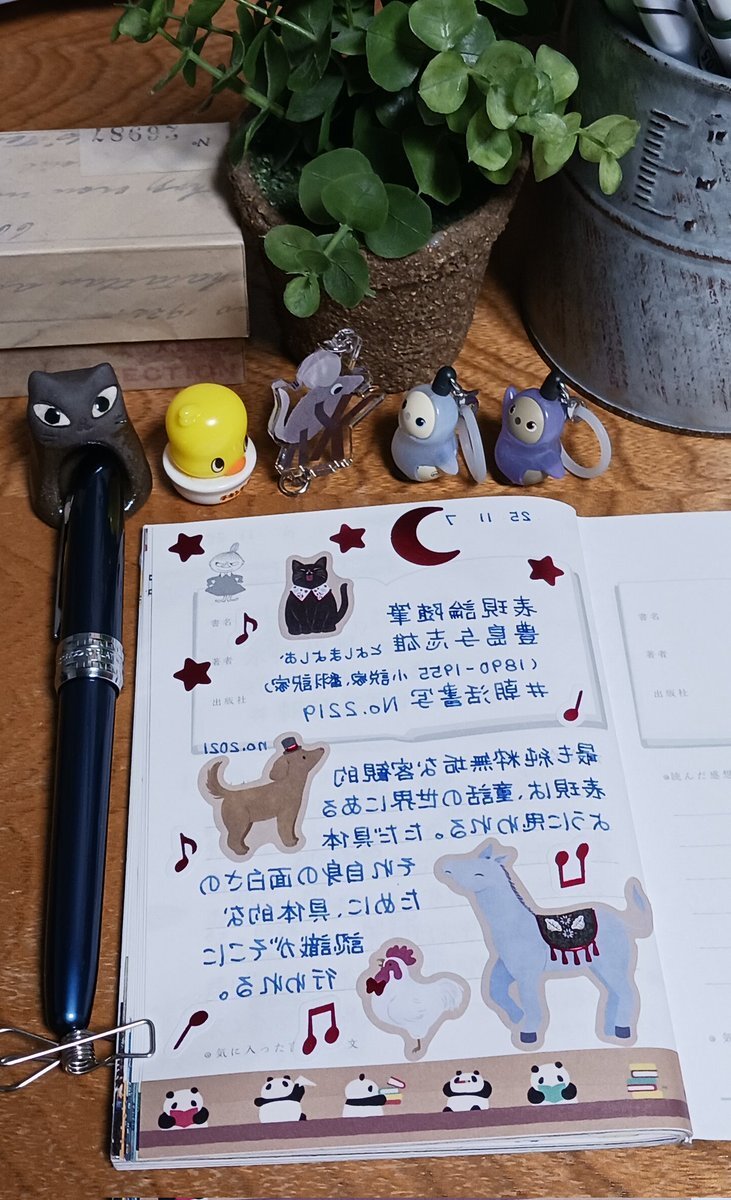 26987
ECTION
25 11 7
書名
著者
出版社
表現論随筆
豊島与志雄 とよしまよしお
(1890-1955 小説家、翻訳家)
#朝活書写 No.2219
no.2021
最も純粋無垢な客観的
表現は、童話の世界にある
ように思われる。ただ具体
それ自身の面白さの
ために、具体的な
認識がそこに
行われる。
◎気に入った
文
書名
著者
出版社
◎読んだ感想